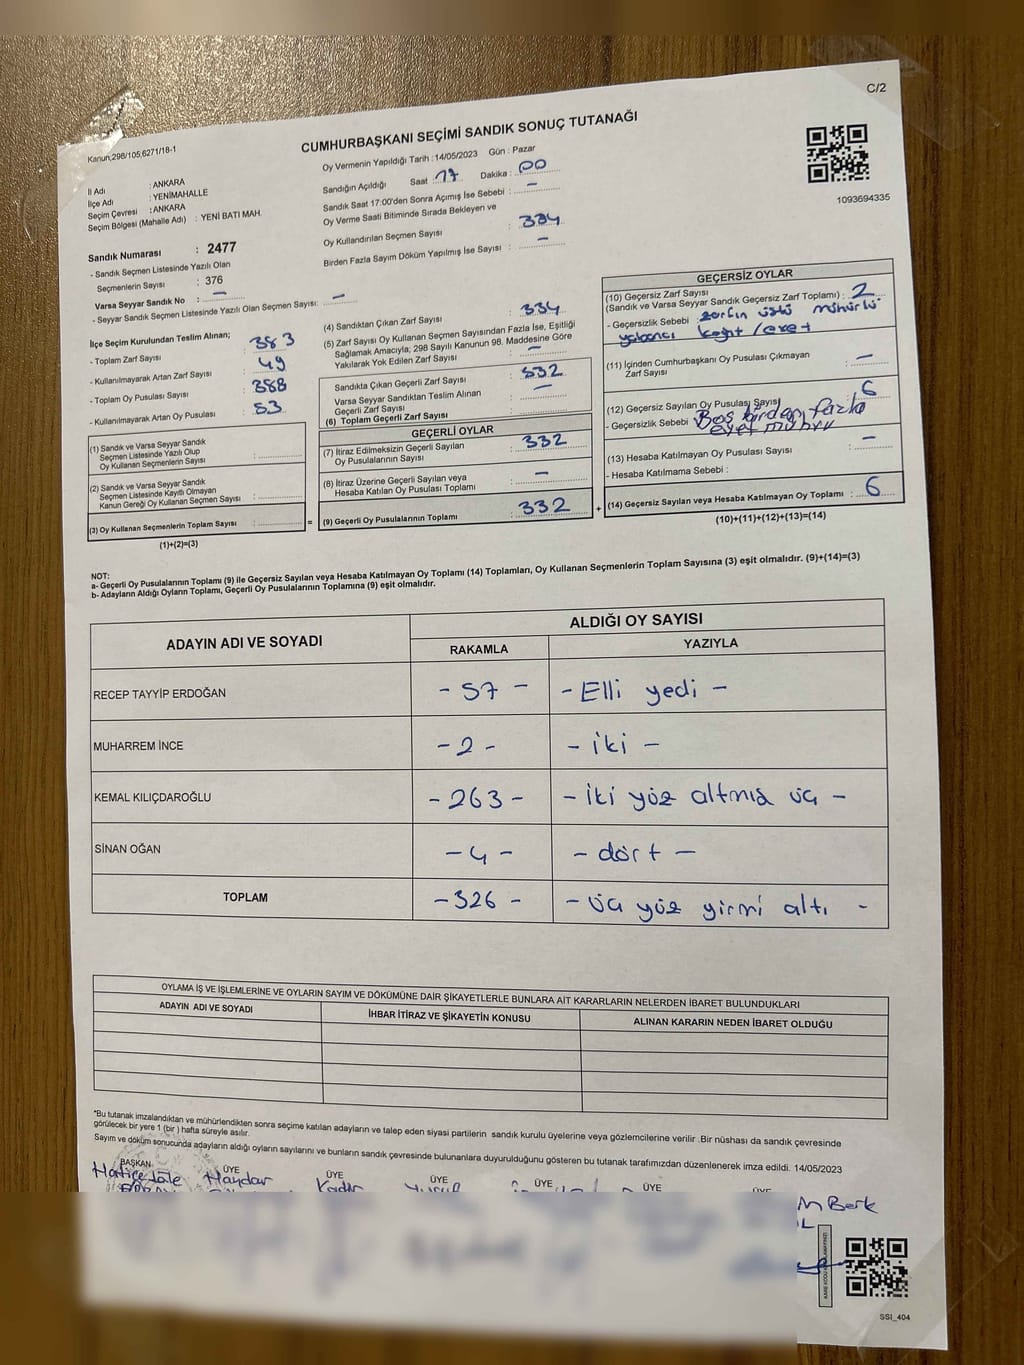 C/2
Kanun,298/105,6271/18-1
CUMHURBAŞKANI SEÇİMİ SANDIK SONUÇ TUTANAĞI
1093694335
İl Adı : ANKARA
İlçe Adı : YENİMAHALLE
Seçim Çevresi : ANKARA
Seçim Bölgesi (Mahalle Adı) : YENİ BATI MAH.
Sandık Numarası : 2477
- Sandık Seçmen Listesinde Yazılı Olan
Seçmenlerin Sayısı : 376
Varsa Seyyar Sandık No : -
- Seyyar Sandık Seçmen Listesinde Yazılı Olan Seçmen Sayısı: -
Oy Vermenin Yapıldığı Tarih : 14/05/2023 Gün : Pazar
Sandığın Açıldığı Saat : 17 Dakika : 00
Sandık Saat 17:00'den Sonra Açımış İse Sebebi : -
Oy Verme Saati Bitiminde Sırada Bekleyen ve
Oy Kullandırılan Seçmen Sayısı : 334
Birden Fazla Sayım Döküm Yapılmış İse Sayısı : -
İlçe Seçim Kurulundan Teslim Alınan;
- Toplam Zarf Sayısı 383
- Kullanılmayarak Artan Zarf Sayısı 49
- Toplam Oy Pusulası Sayısı 388
- Kullanılmayarak Artan Oy Pusulası : 53
(1) Sandık ve Varsa Seyyar Sandık
Seçmen Listesinde Yazılı Olup
Oy Kullanan Seçmenlerin Sayısı :
(2) Sandık ve Varsa Seyyar Sandık
Seçmen Listesinde Kayıtlı Olmayan
Kanun Gereği Oy Kullanan Seçmen Sayısı :
(3) Oy Kullanan Seçmenlerin Toplam Sayısı : =
(1)+(2)=(3)
(4) Sandıktan Çıkan Zarf Sayısı : 334
(5) Zarf Sayısı Oy Kullanan Seçmen Sayısından Fazla İse, Eşitliği
Sağlamak Amacıyla; 298 Sayılı Kanunun 98. Maddesine Göre
Yakılarak Yok Edilen Zarf Sayısı : -
Sandıkta Çıkan Geçerli Zarf Sayısı : 332
Varsa Seyyar Sandıktan Teslim Alınan
Geçerli Zarf Sayısı : -
(6) Toplam Geçerli Zarf Sayısı :
GEÇERLİ OYLAR
(7) İtiraz Edilmeksizin Geçerli Sayılan
Oy Pusulalarının Sayısı : 332
(8) İtiraz Üzerine Geçerli Sayılan veya
Hesaba Katılan Oy Pusulası Toplamı : -
(9) Geçerli Oy Pusulalarının Toplamı : 332 +
GEÇERSİZ OYLAR
(10) Geçersiz Zarf Sayısı
(Sandık ve Varsa Seyyar Sandık Geçersiz Zarf Toplamı) : 2
- Geçersizlik Sebebi : zarfın üstü mühürlü
yabancı kağıt / evet
(11) İçinden Cumhurbaşkanı Oy Pusulası Çıkmayan
Zarf Sayısı : -
(12) Geçersiz Sayılan Oy Pusulası Sayısı : 6
- Geçersizlik Sebebi : Boş birden fazla
evet mührü
(13) Hesaba Katılmayan Oy Pusulası Sayısı : -
- Hesaba Katılmama Sebebi :
(14) Geçersiz Sayılan veya Hesaba Katılmayan Oy Toplamı : 6
(10)+(11)+(12)+(13)=(14)
NOT:
a- Geçerli Oy Pusulalarının Toplamı (9) ile Geçersiz Sayılan veya Hesaba Katılmayan Oy Toplamı (14) Toplamları, Oy Kullanan Seçmenlerin Toplam Sayısına (3) eşit olmalıdır. (9)+(14)=(3)
b- Adayların Aldığı Oyların Toplamı, Geçerli Oy Pusulalarının Toplamına (9) eşit olmalıdır.
ADAYIN ADI VE SOYADI ALDIĞI OY SAYISI
RAKAMLA YAZIYLA
RECEP TAYYİP ERDOĞAN - 57 - - Elli yedi -
MUHARREM İNCE - 2 - - iki -
KEMAL KILIÇDAROĞLU - 263 - - iki yüz altmış üç -
SİNAN OĞAN - 4 - - dört -
TOPLAM - 326 - - üç yüz yirmi altı -
OYLAMA İŞ VE İŞLEMLERİNE VE OYLARIN SAYIM VE DÖKÜMÜNE DAİR ŞİKAYETLERLE BUNLARA AİT KARARLARIN NELERDEN İBARET BULUNDUKLARI
ADAYIN ADI VE SOYADI İHBAR İTİRAZ VE ŞİKAYETİN KONUSU ALINAN KARARIN NEDEN İBARET OLDUĞU
*Bu tutanak imzalandıktan ve mühürlendikten sonra seçime katılan adayların ve talep eden siyasi partilerin sandık kurulu üyelerine veya gözlemcilerine verilir. Bir nüshası da sandık çevresinde
görülecek bir yere 1 (bir) hafta süreyle asılır.
Sayım ve döküm sonucunda adayların aldığı oyların sayılarını ve bunların sandık çevresinde bulunanlara duyurulduğunu gösteren bu tutanak tarafımızdan düzenlenerek imza edildi. 14/05/2023
BAŞKAN ÜYE ÜYE ÜYE ÜYE ÜYE ÜYE
Hatice Lale Haydar Kadir Yusuf
Berk
SSI_404